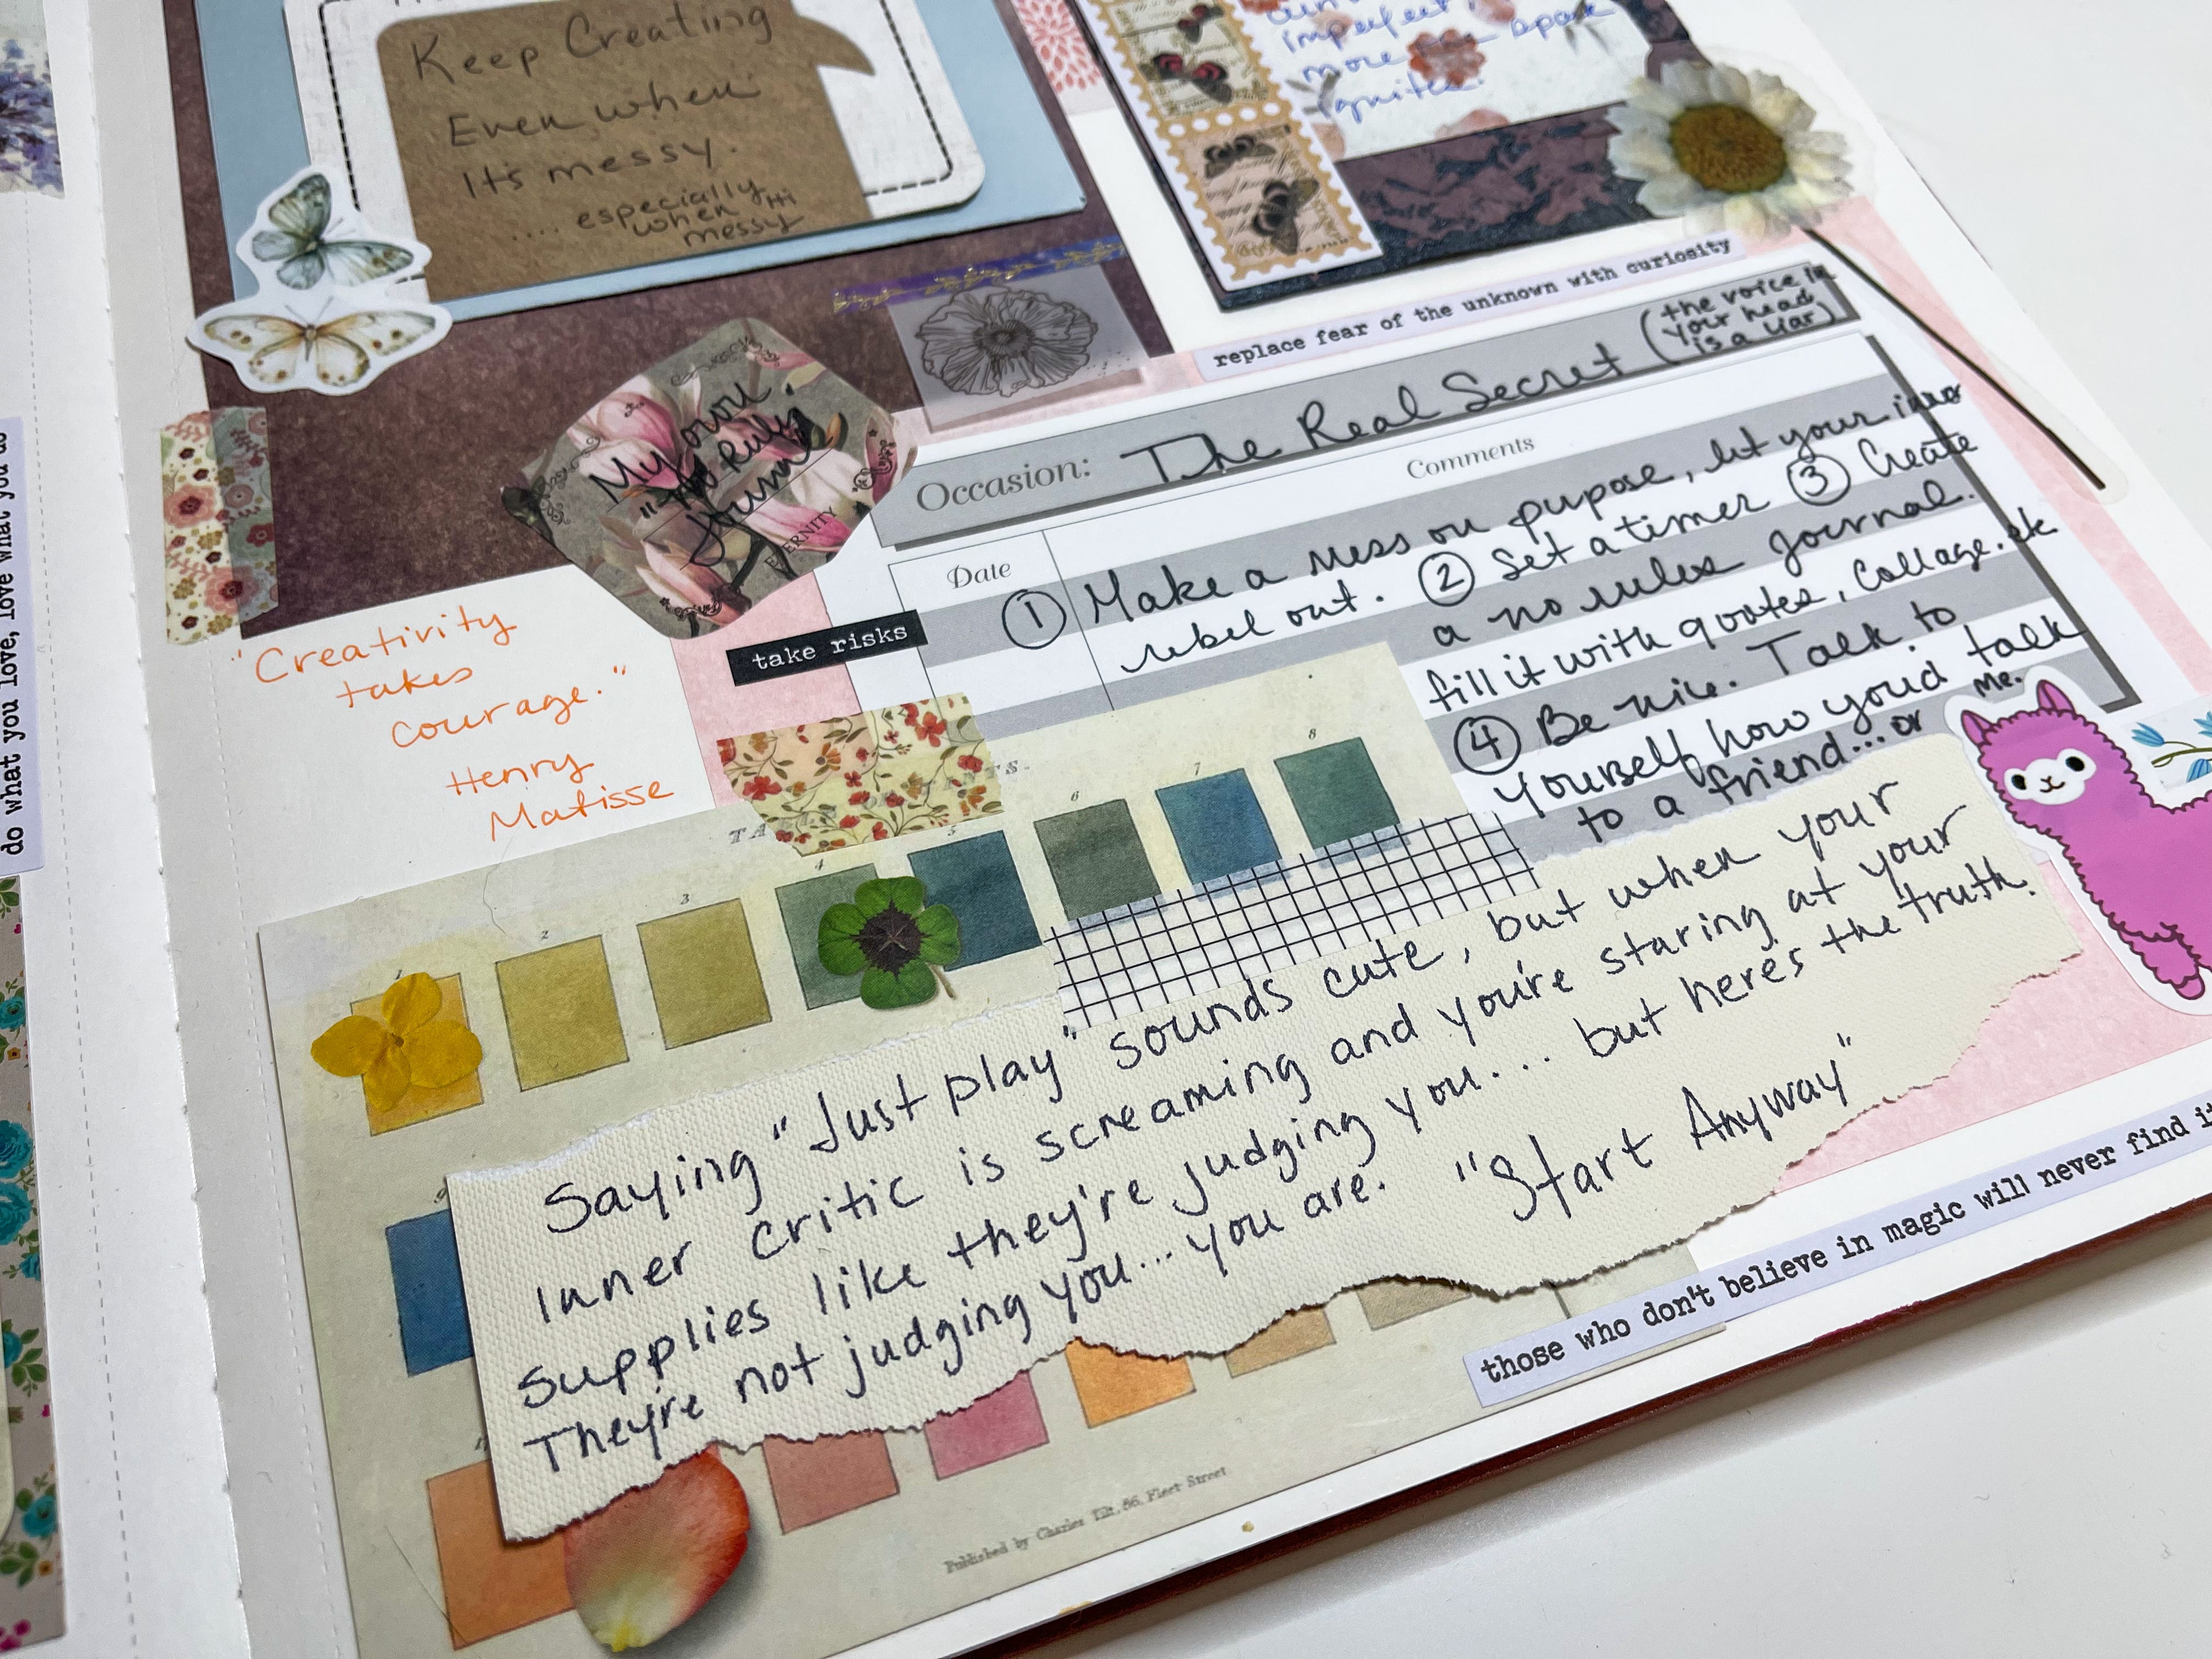 Keep Creating
Even when
It's messy.
.... especially
when it's
messy
imperfect,
more
spark
ignites.
replace fear of the unknown with curiosity
Occasion: The Real Secret
(the voice in
your head
is a liar)
Comments
Date
① Make a mess on pupose, let your inner
rebel out. ② Set a timer ③ Create
a no rules journal.
fill it with quotes, collage. etc
④ Be nice. Talk to
yourself how you'd talk
to a friend... or me.
My own
"No Rules
Journal
ETERNITY
take risks
"Creativity
takes
courage."
Henry
Matisse
do what you love, love what you do
1
2
3
4
5
6
7
8
Saying "Just play" sounds cute, but when your
inner critic is screaming and you're staring at your
supplies like they're judging you... but here's the truth.
They're not judging you... you are. "Start Anyway"
those who don't believe in magic will never find it
Published by Charles Tilt, 86, Fleet Street